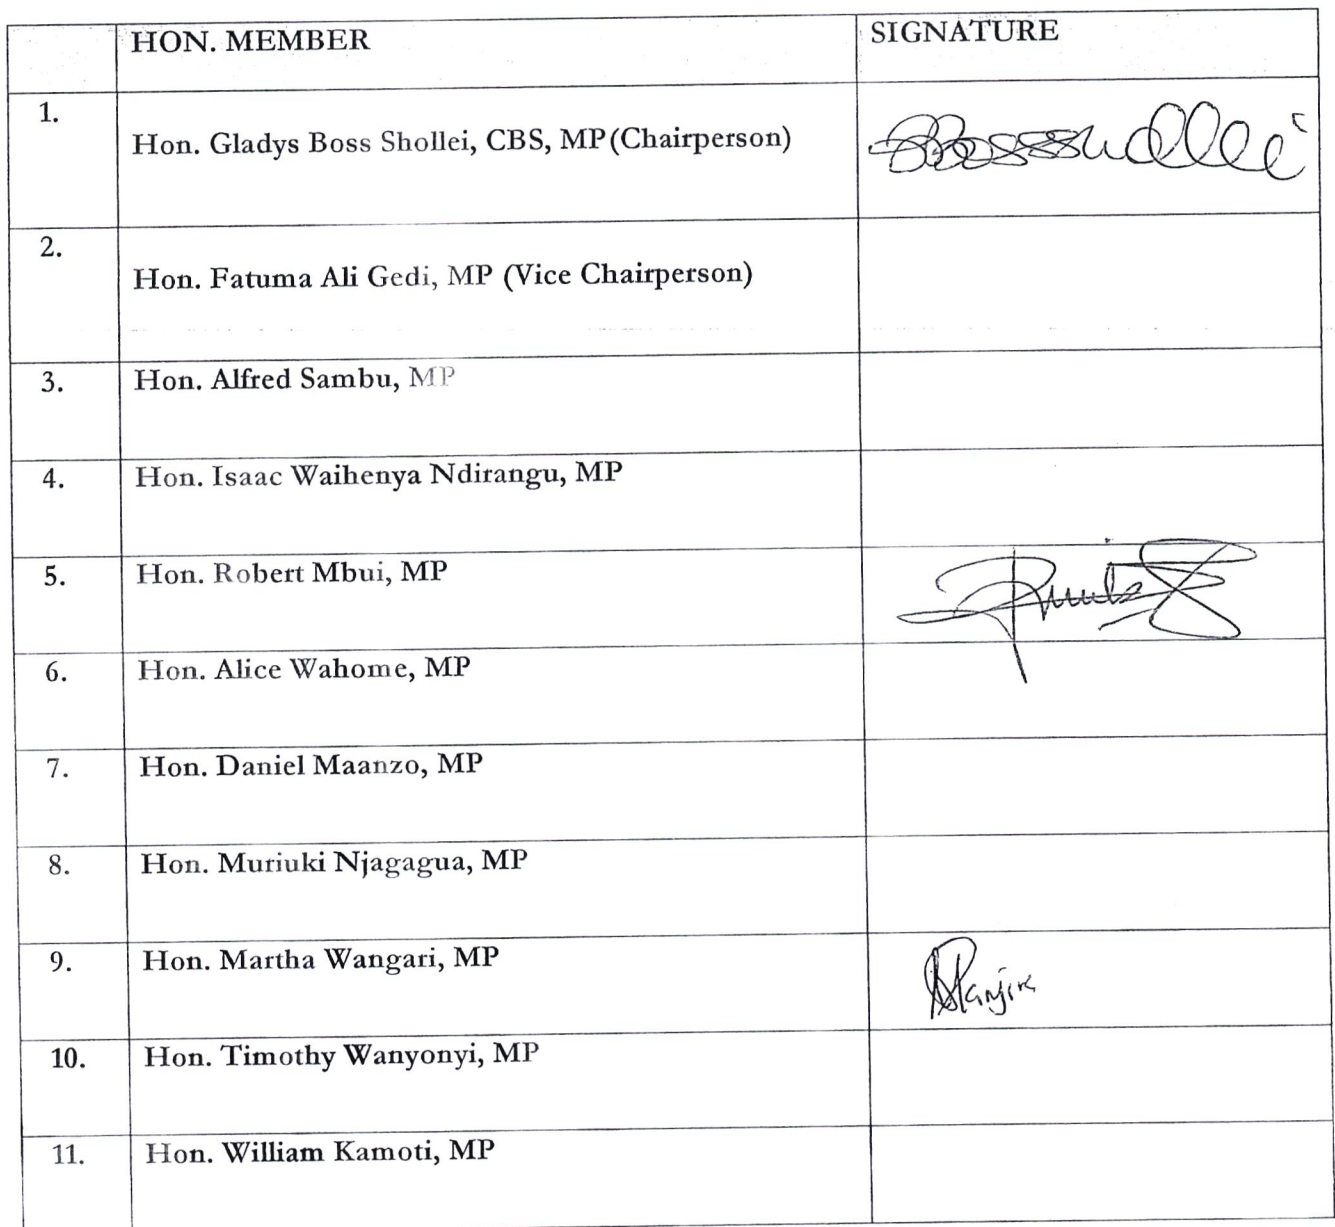 HON. MEMBER SIGNATURE
1. Hon. Gladys Boss Shollei, CBS, MP(Chairperson)
2. Hon. Fatuma Ali Gedi, MP (Vice Chairperson)
3. Hon. Alfred Sambu, MP
4. Hon. Isaac Waihenya Ndirangu, MP
5. Hon. Robert Mbui, MP
6. Hon. Alice Wahome, MP
7. Hon. Daniel Maanzo, MP
8. Hon. Muriuki Njagagua, MP
9. Hon. Martha Wangari, MP
10. Hon. Timothy Wanyonyi, MP
11. Hon. William Kamoti, MP